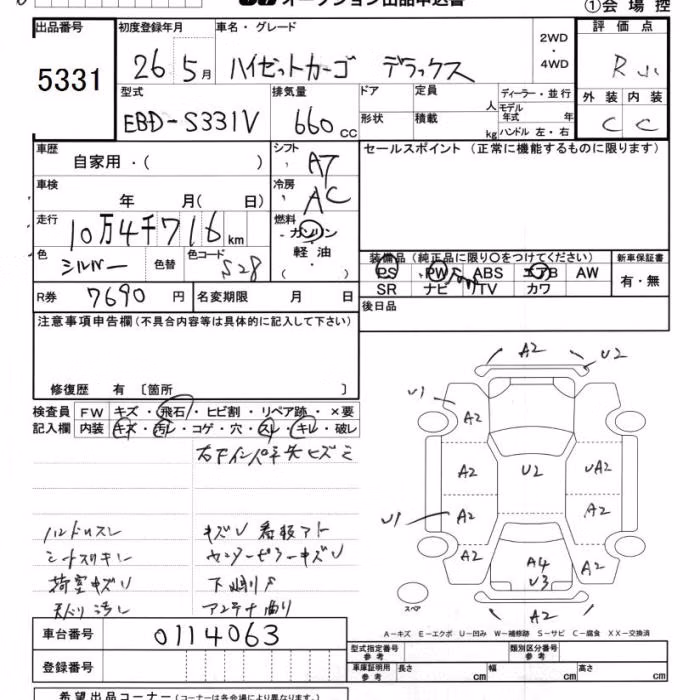 オークション出品申込書
①会場控
出品番号
初度登録年月
車名・グレード
2WD
・
4WD
評価点
5331
26 5月
ハイゼットカーゴ デラックス
R
型式
排気量
ドア
定員
人
ディーラー・並行
モデル年式 年
外装 内装
EBD-S331V
660cc
形状
積載
kg
ハンドル 左・右
C C
車歴
自家用・( )
シフト
AT
セールスポイント (正常に機能するものに限ります)
車検
年 月( 日)
冷房
AC
走行
10万4千716km
燃料
ガソリン
軽油
・( )
色
シルバー
色替
色コード
S28
装備品 (純正品に限り○をつけてください)
新車保証書
PS PW ABS エアB AW
有・無
SR ナビ TV カワ
R券
7690円
名変期限 月 日
後日品
注意事項申告欄 (不具合内容等は具体的に記入して下さい)
修復歴 有 〔箇所 〕
検査員
記入欄
FW キズ・飛石・ヒビ割・リペア跡・×要
内装 キズ・汚レ・コゲ・穴・スレ・キレ・破レ
ハンドルスレ キズU 看板アト
シートスリキレ センターピラーキズU
荷室キズU 下廻りS
天バリ汚レ アンテナ曲り
A2
U2
U1
A2
A2 U2 UA2
U1
A2 A2
A2 A4 A2
U3
A2
スペア
A-キズ E-エクボ U-凹み W-補修跡 S-サビ C-腐食 XX-交換済
車台番号
0114063
型式指定番号
参考
類別区分番号
参考
登録番号
車庫証明用
参考
長さ cm 幅 cm 高さ cm
希望出品コーナー (コーナーは各会場により異なります。)